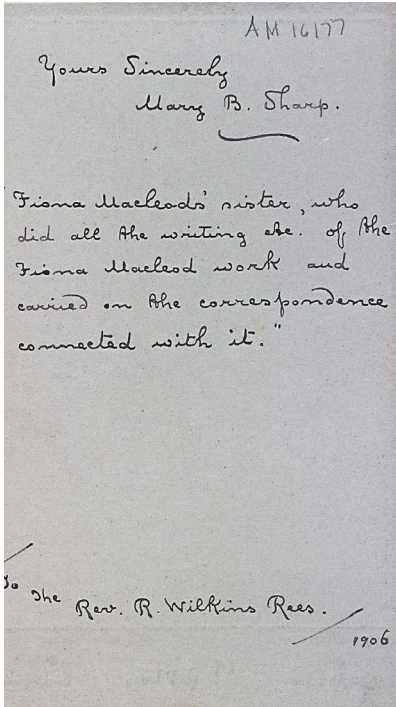 AM 16177
Yours Sincerely
Mary B. Sharp.
Fiona Macleods' sister, who
did all the writing etc. of the
Fiona Macleod work and
carried on the correspondence
connected with it."
To the
Rev. R. Wilkins Rees.
1906